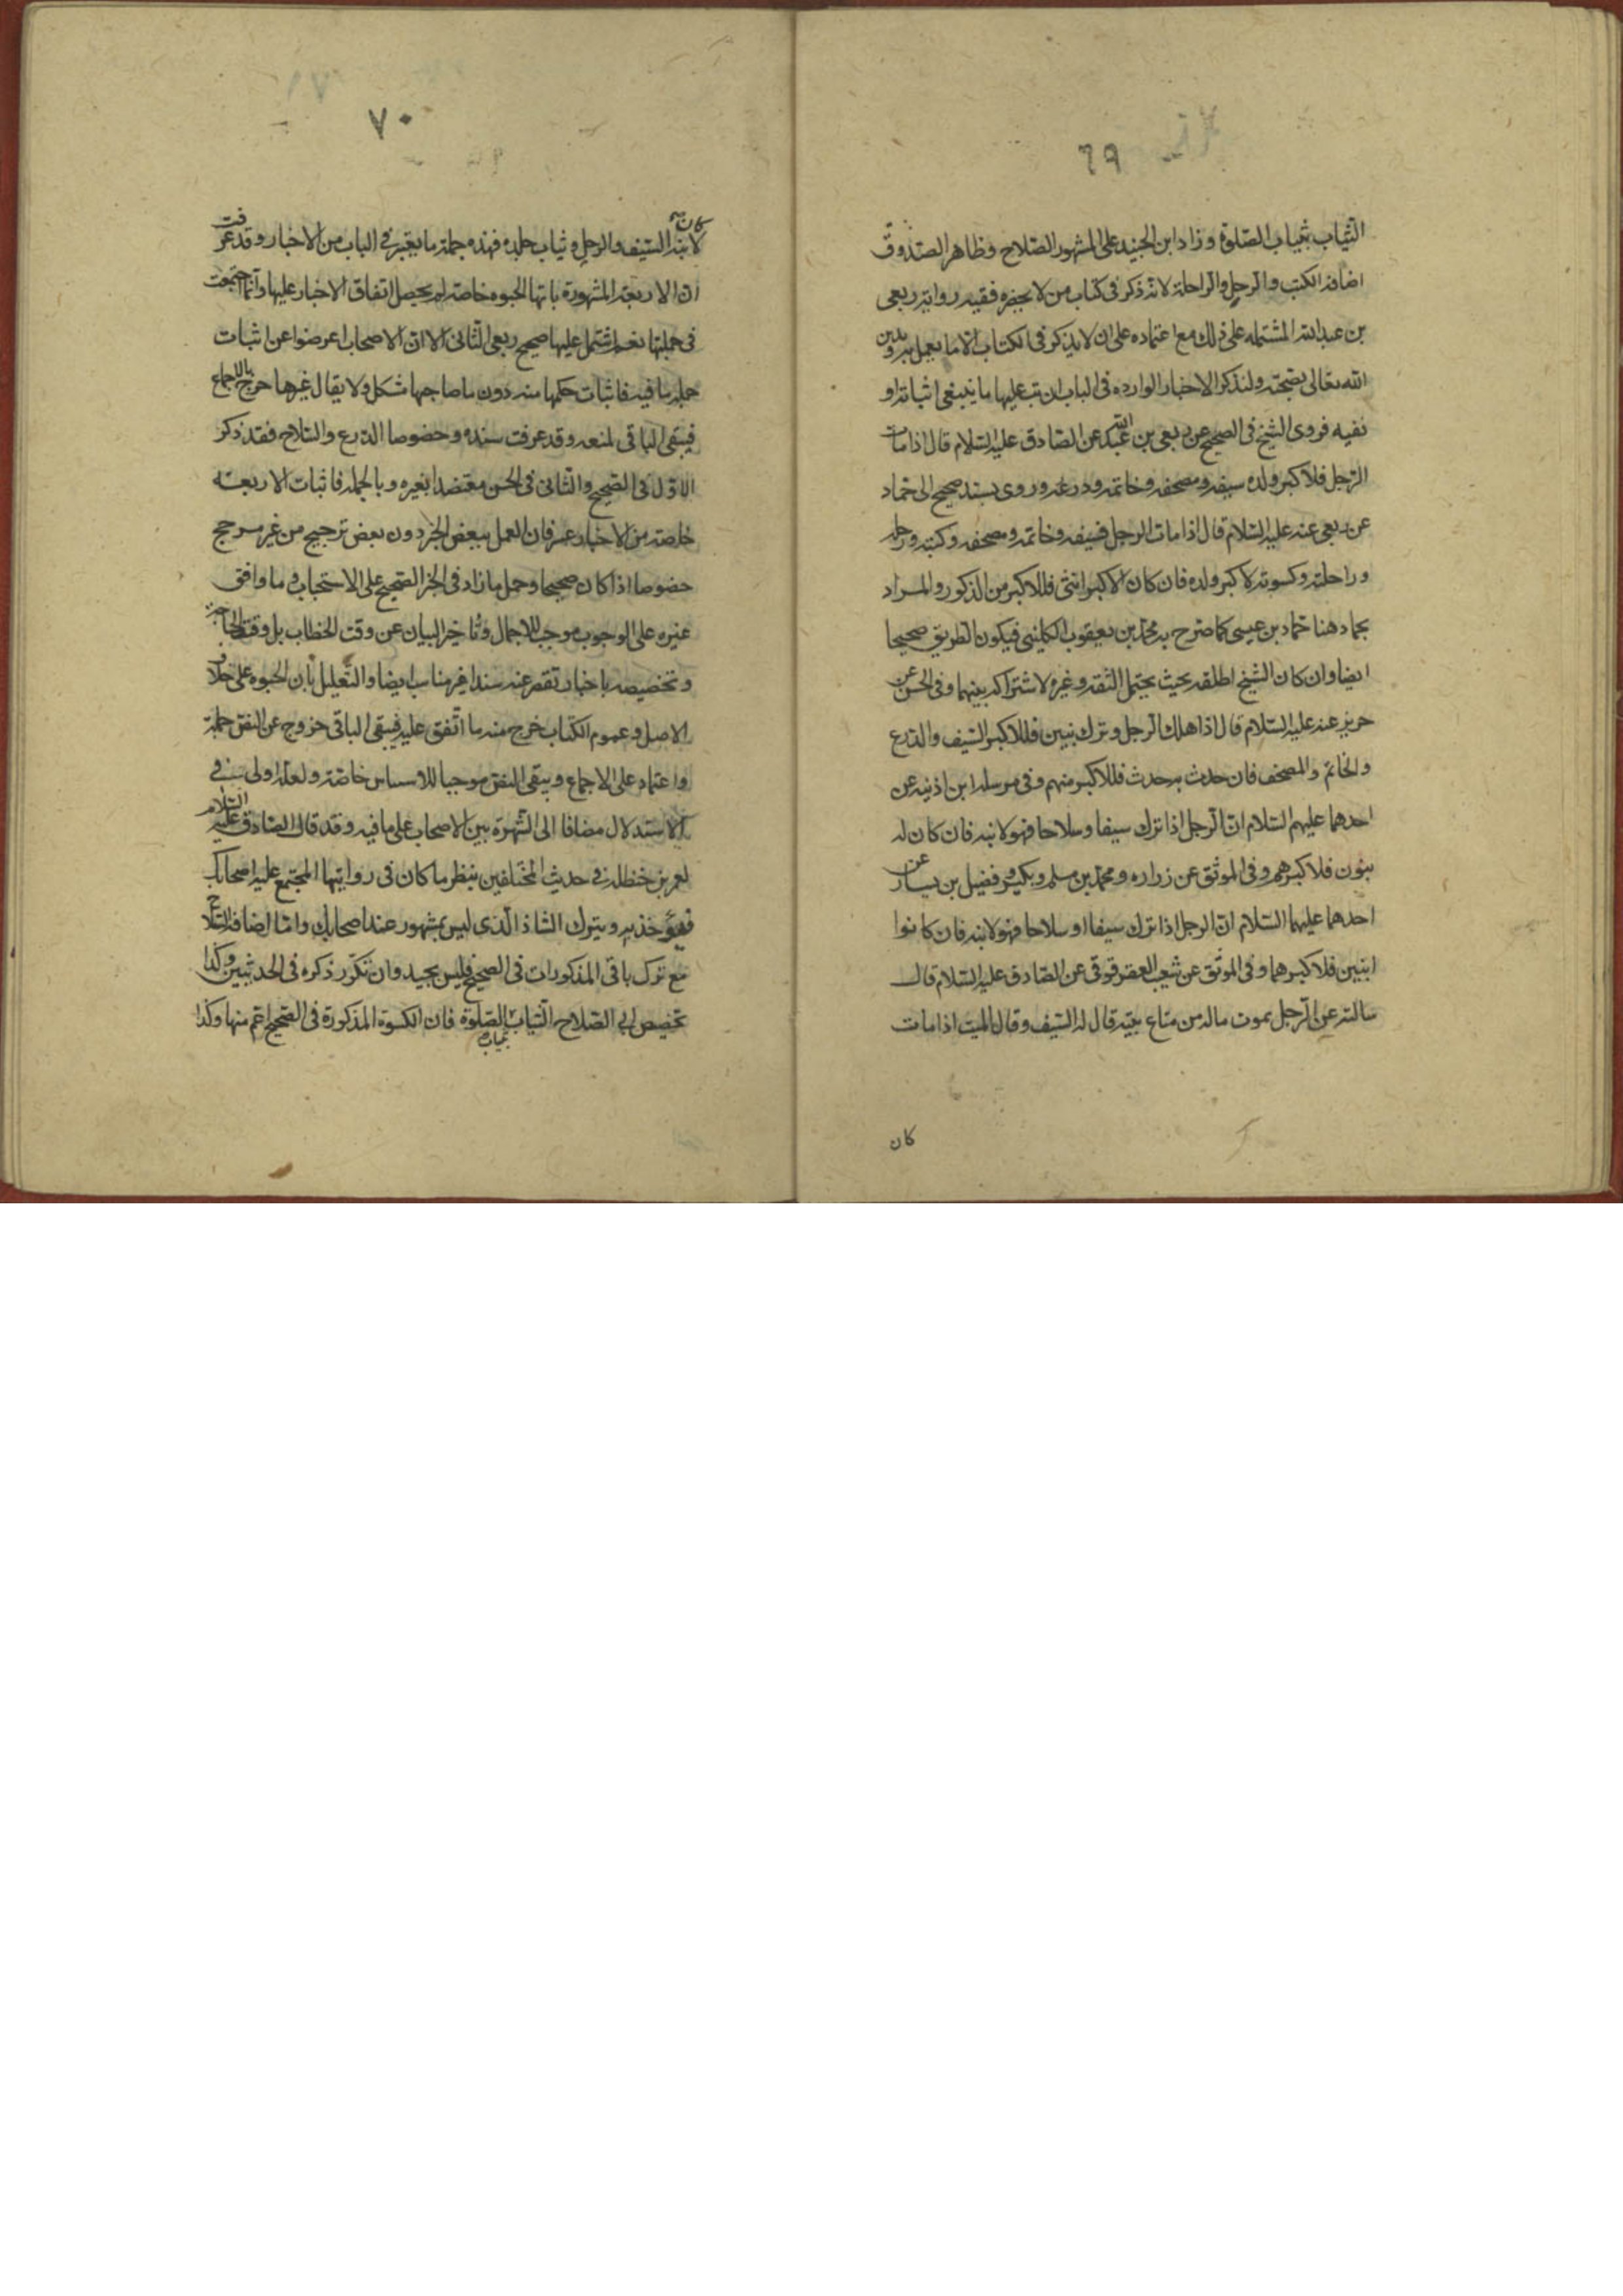 ٦٩
الثياب بثياب الصلوة وزاد ابن الجنيد على المشهور السلاح وظاهر الصدوق
اضافة الكتب والرحل والراحلة لانه ذكر فى كتاب من لا يحضره فقيه رواية ربعى
بن عبد الله المشتملة على ذلك مع اعتماده على ان لا يذكر فى الكتاب الا ما يعمل به ويدين
الله تعالى بصحته ولنذكر الاخبار الواردة فى الباب ليترتب عليها ما ينبغى اثباته او
نفيه فروى الشيخ فى الصحيح عن ربعى بن عبد الله عن الصادق عليه السلام قال اذا مات
الرجل فلاكبر ولده سيفه ومصحفه وخاتمه ودرعه وروى بسند صحيح الى حماد
عن ربعى عنه عليه السلام قال اذا مات الرجل فسيفه وخاتمه ومصحفه وكتبه ورحله
وراحلته وكسوته لاكبر ولده فان كان الاكبر انثى فللاكبر من الذكور والمراد
بحماد هنا حماد بن عيسى كما صرح به محمد بن يعقوب الكلينى فيكون الطريق صحيحا
ايضا وان كان الشيخ اطلقه بحيث يحتمل الثقة وغيره لاشتراكه بينهما وفى الحسن عن
حريز عنه عليه السلام قال اذا هلك الرجل وترك بنين فللاكبر السيف والدرع
والخاتم والمصحف فان حدث به حدث فللاكبر منهم وفى مرسلة ابن اذينه عن
احدهما عليهم السلام ان الرجل اذا ترك سيفا وسلاحا فهو لابنه فان كان له
بنون فلاكبرهم وفى الموثق عن زراره ومحمد بن مسلم وبكير وفضيل بن يسار عن
احدهما عليهما السلام ان الرجل اذا ترك سيفا او سلاحا فهو لابنه فان كانوا
ابنين فلاكبرهما وفى الموثق عن شعيب العقرقوفى عن الصادق عليه السلام قال
سالته عن الرجل يموت ماله من متاع بيته قال له السيف وقال الميت اذا مات
كان
٧٠
كان لابنه السيف والرحل وثياب جلده فهذه جملة ما يعتبر فى الباب من الاخبار وقد عرفت
ان الاربعة المشهورة بانها الحبوه خاصة لم يحصل اتفاق الاخبار عليها وانما اجتمعت
فى جملتها نعم اشتمل عليها صحيح ربعى الثانى الا ان الاصحاب اعرضوا عن اثبات
جملة ما فيه فاثبات حكمها منه دون ما صاحبها مشكل ولا يقال غيرها خرج بالاجماع
فيبقى الباقى لمنعه وقد عرفت سنده وخصوصا الدرع والسلاح فقد ذكر
الاول فى الصحيح والثانى فى الحسن معتضدا بغيره وبالجملة فاثبات الاربعة
خاصة من الاخبار عسر فان العمل ببعض الخبر دون بعض ترجيح من غير مرجح
خصوصا اذا كان صحيحا وحمل ما زاد فى الخبر الصحيح على الاستحباب وما وافق
غيره على الوجوب موجب للاجمال وتاخير البيان عن وقت الخطاب بل وقت الحاجة
وتخصيصه باخبار تقصر عنه سندا غير مناسب ايضا والتعليل بان الحبوه على خلاف
الاصل وعموم الكتاب خرج منه ما اتفق عليه فيبقى الباقى خروج عن النص جملة
واعتماد على الاجماع ويبقى النص موجبا للاستيناس خاصة ولعله اولى فى
الاستدلال مضافا الى الشهرة بين الاصحاب على ما فيه وقد قال الصادق عليه السلام
لعمر بن حنظلة فى حديث المختلفين ينظر ما كان فى روايتهما المجتمع عليه اصحابك
فيؤخذ به ويترك الشاذ الذى ليس بمشهور عند اصحابك واما اضافة السلاح
مع ترك باقى المذكورات فى الصحيح فليس بجيد وان تكرر ذكره فى الحديثين وكذا
تخصيص ابى الصلاح الثياب بثياب الصلوة فان الكسوة المذكورة فى الصحيح اعم منها وكذا